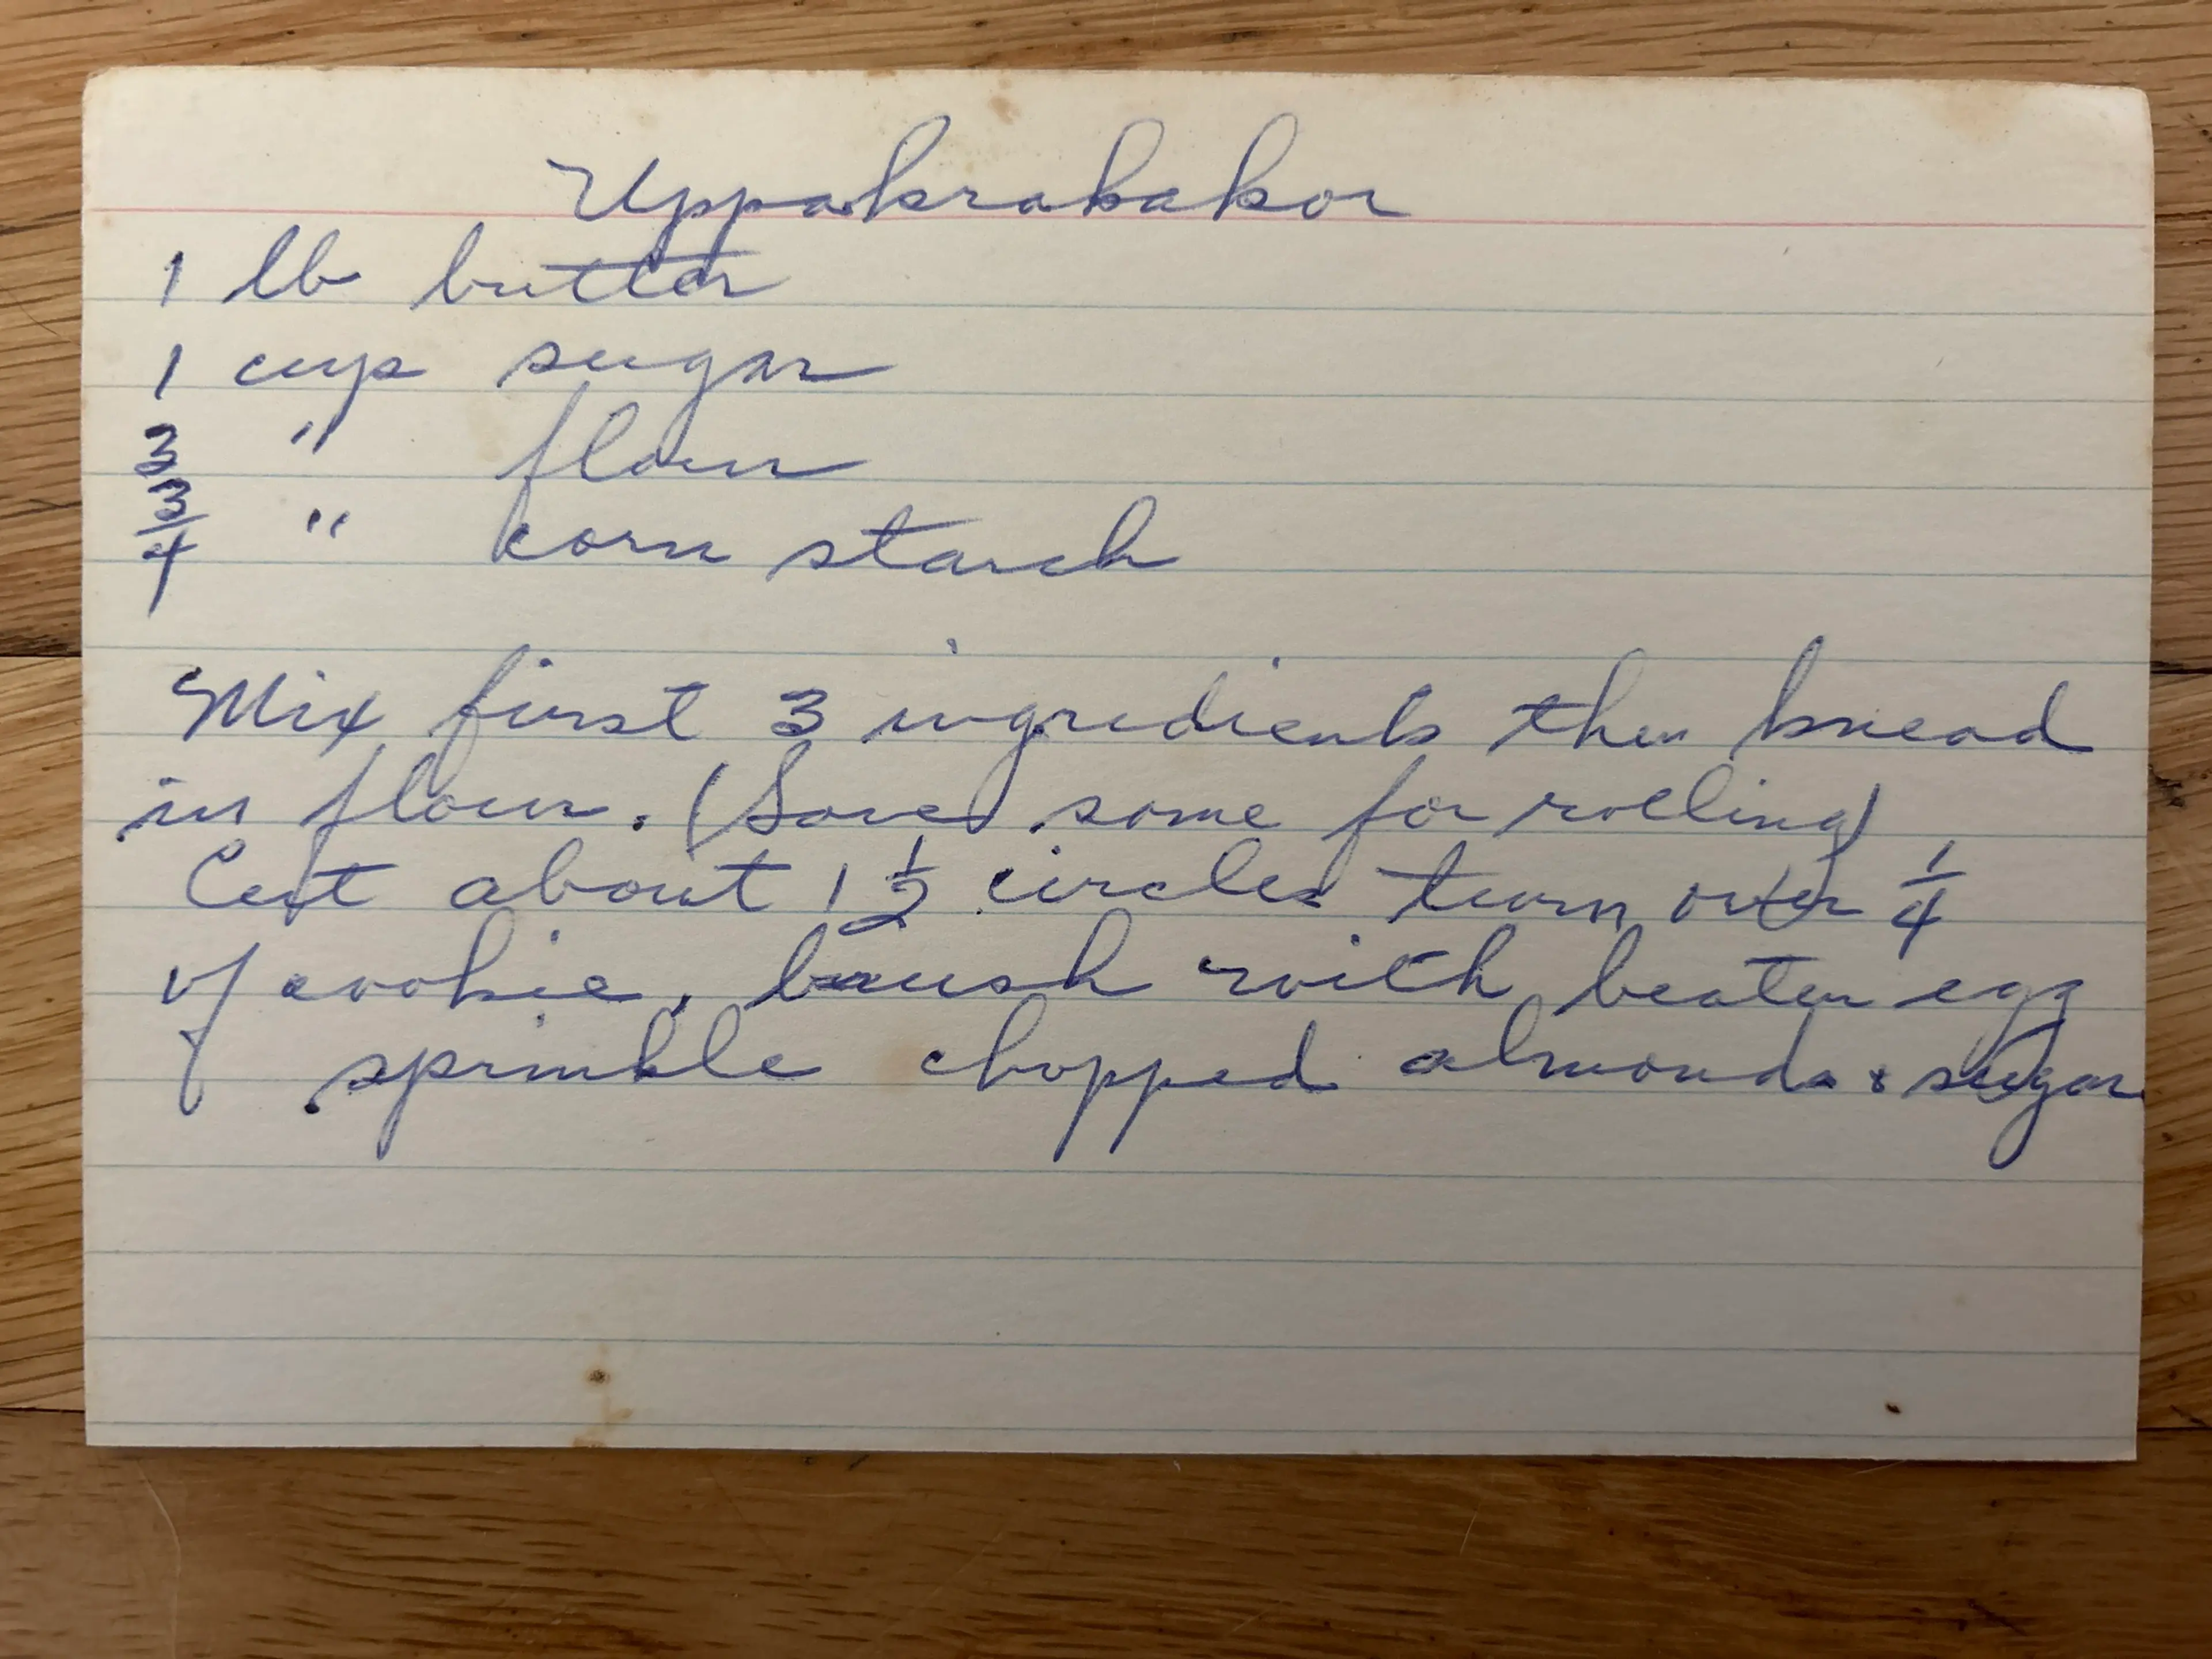 Uppakrabakor
1 lb butter
1 cup sugar
3 " flour
3/4 " corn starch
Mix first 3 ingredients then knead
in flour. (Save some for rolling)
Cut about 1 1/2 circles turn over 1/4
of cookie, brush with beaten egg
& sprinkle chopped almonds & sugar